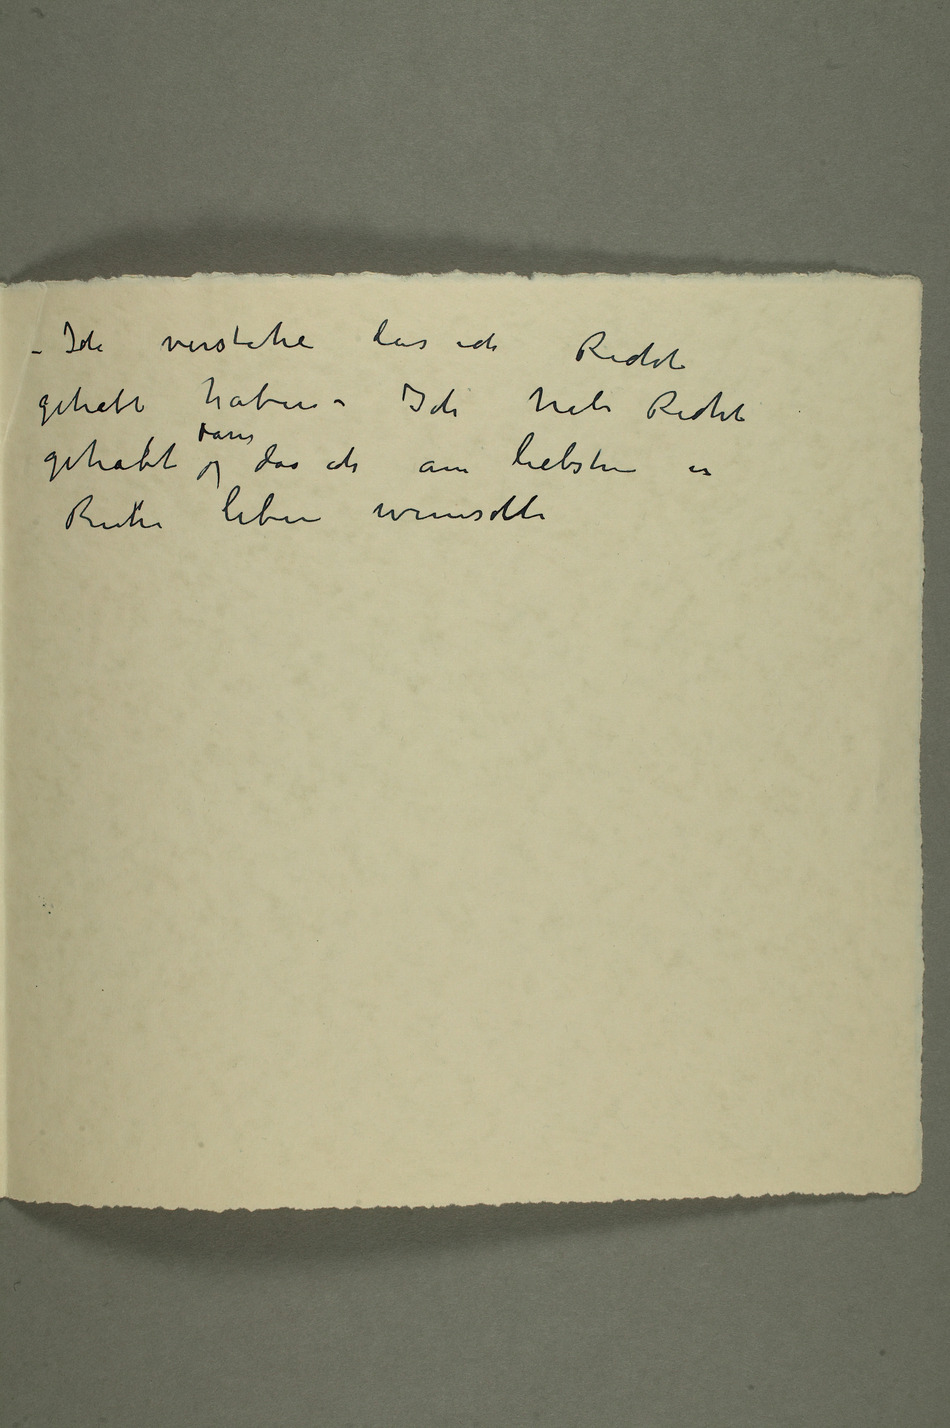 – Ich verstehe das ich Recht
gehabt haben – Ich hab Recht
gehabt das ich am liebsten in
Ruhe leben wünschte